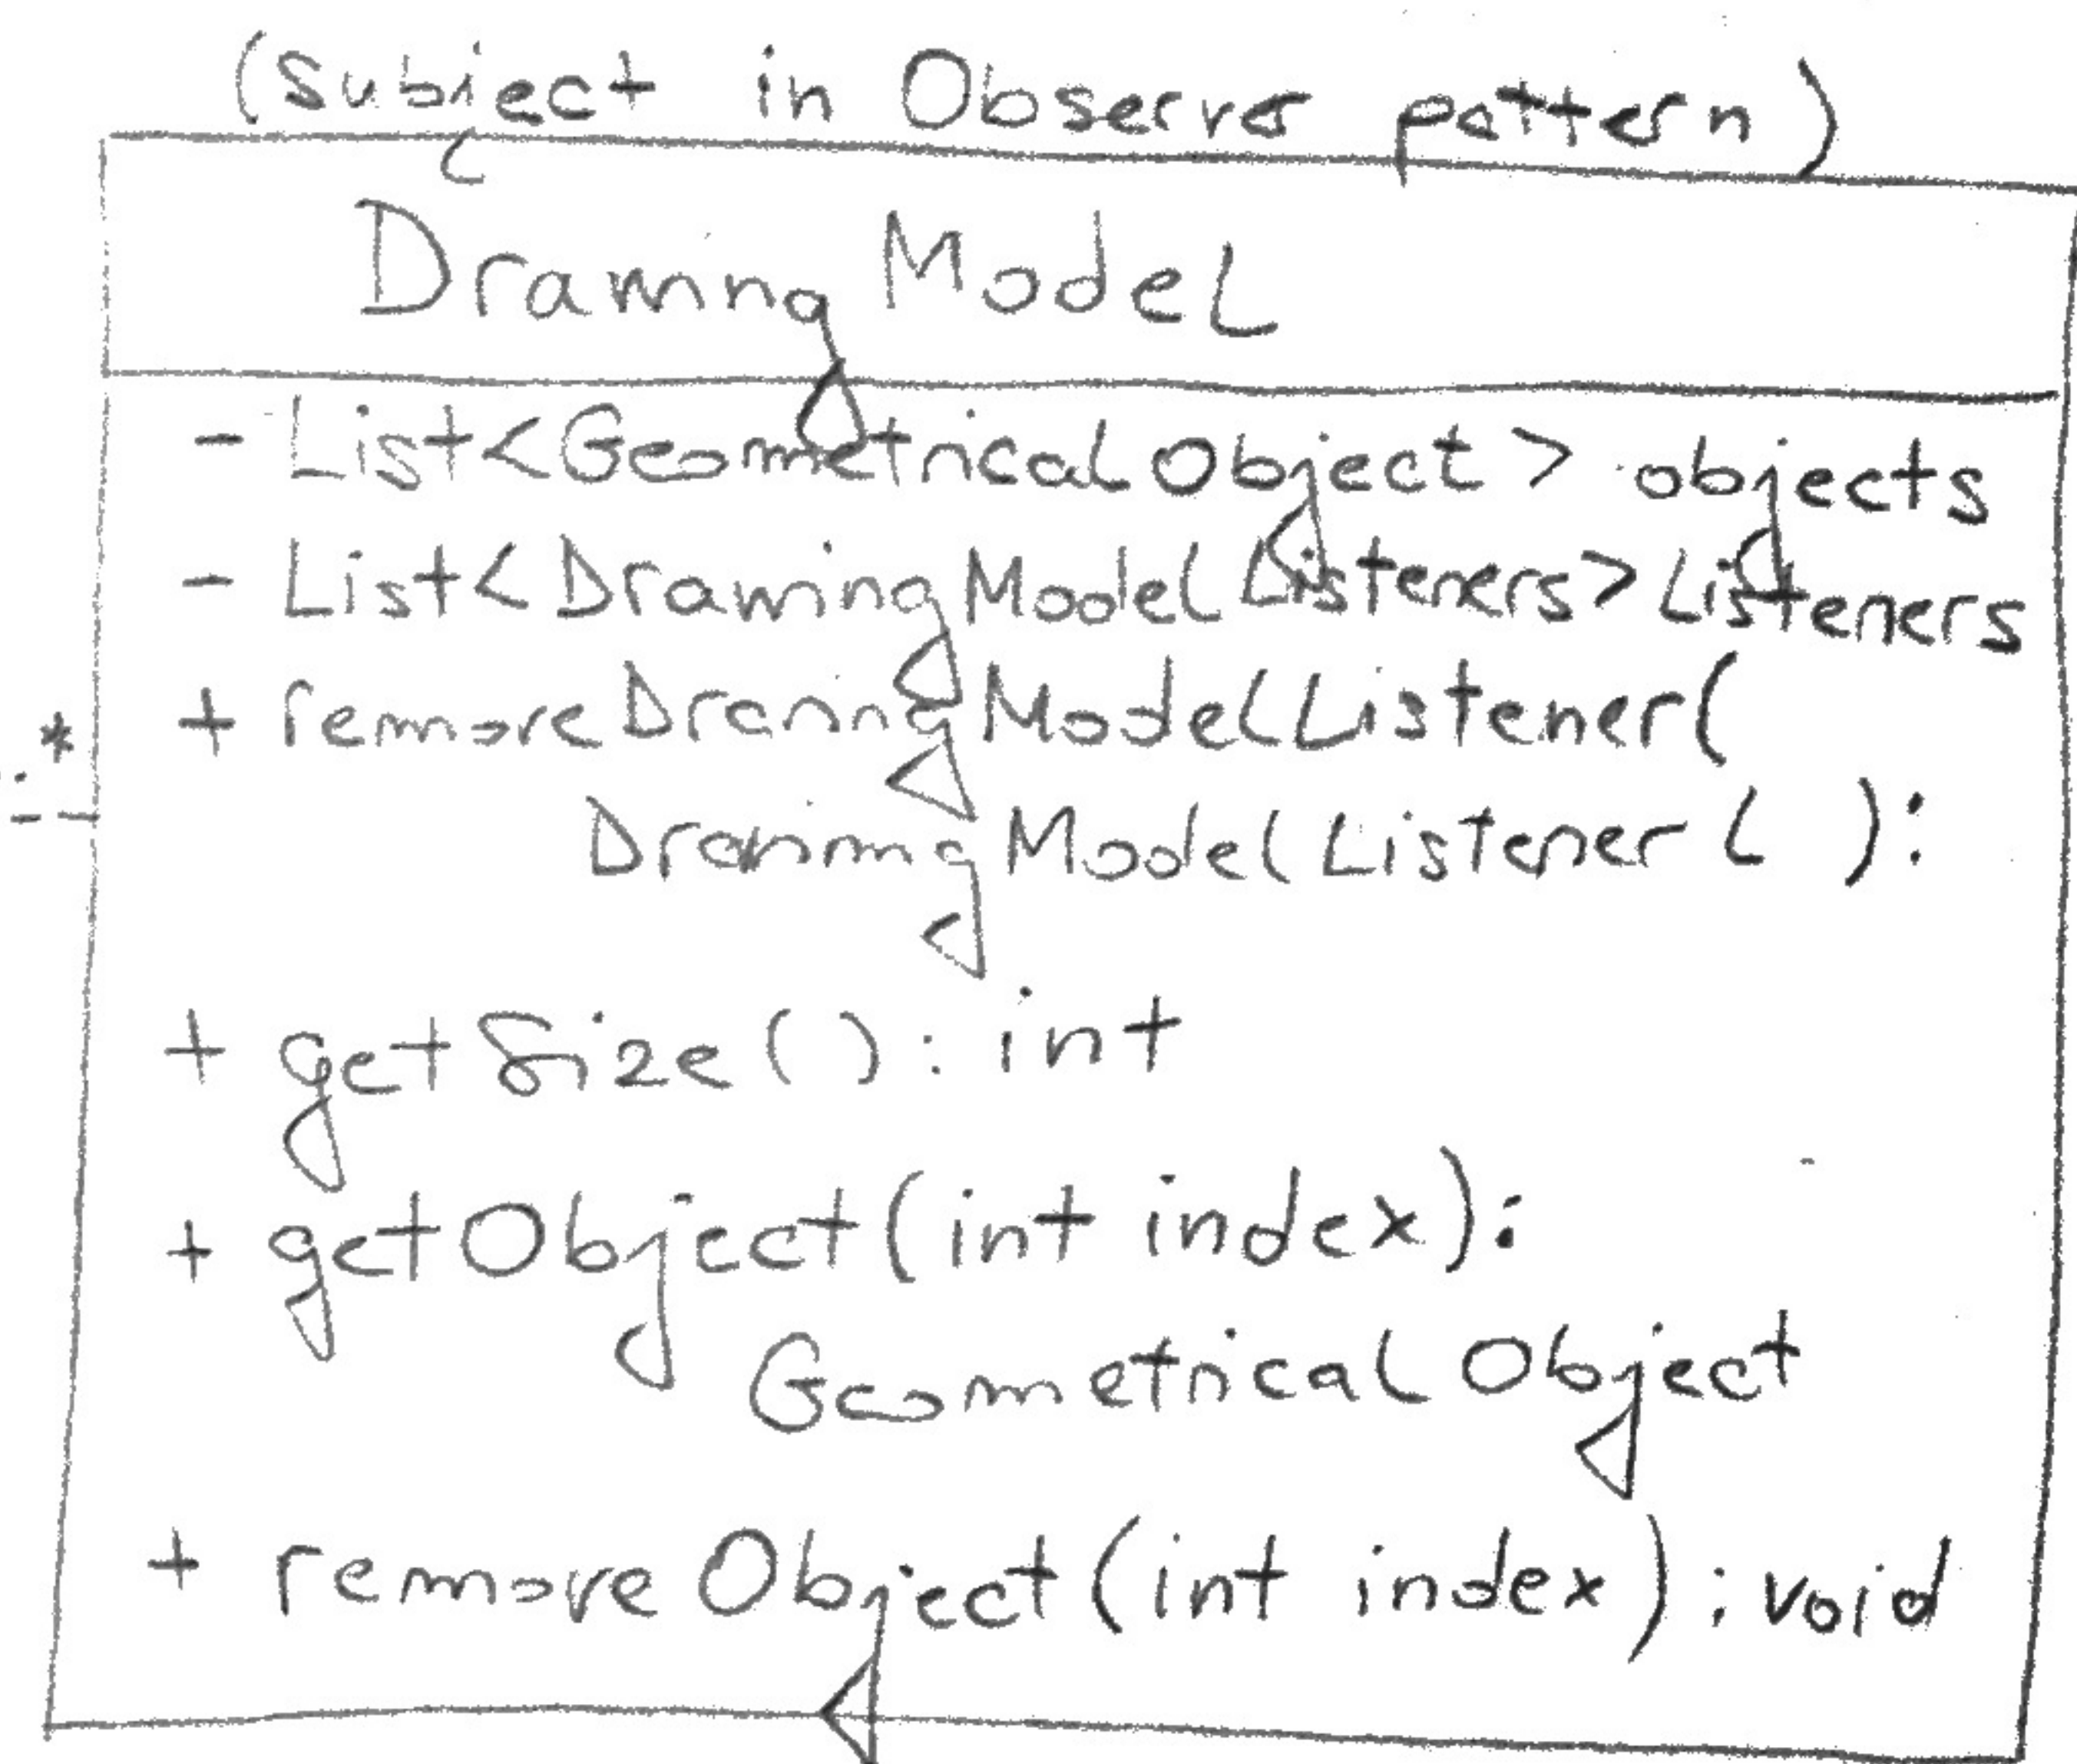 (Subject in Observer pattern)
DrawingModel
- List<GeometricalObject> objects
- List<DrawingModelListeners> Listeners
+ removeDrawingModelListener(
DrawingModelListener L ):
+ getSize(): int
+ getObject(int index):
GeometricalObject
+ removeObject(int index): void
.*